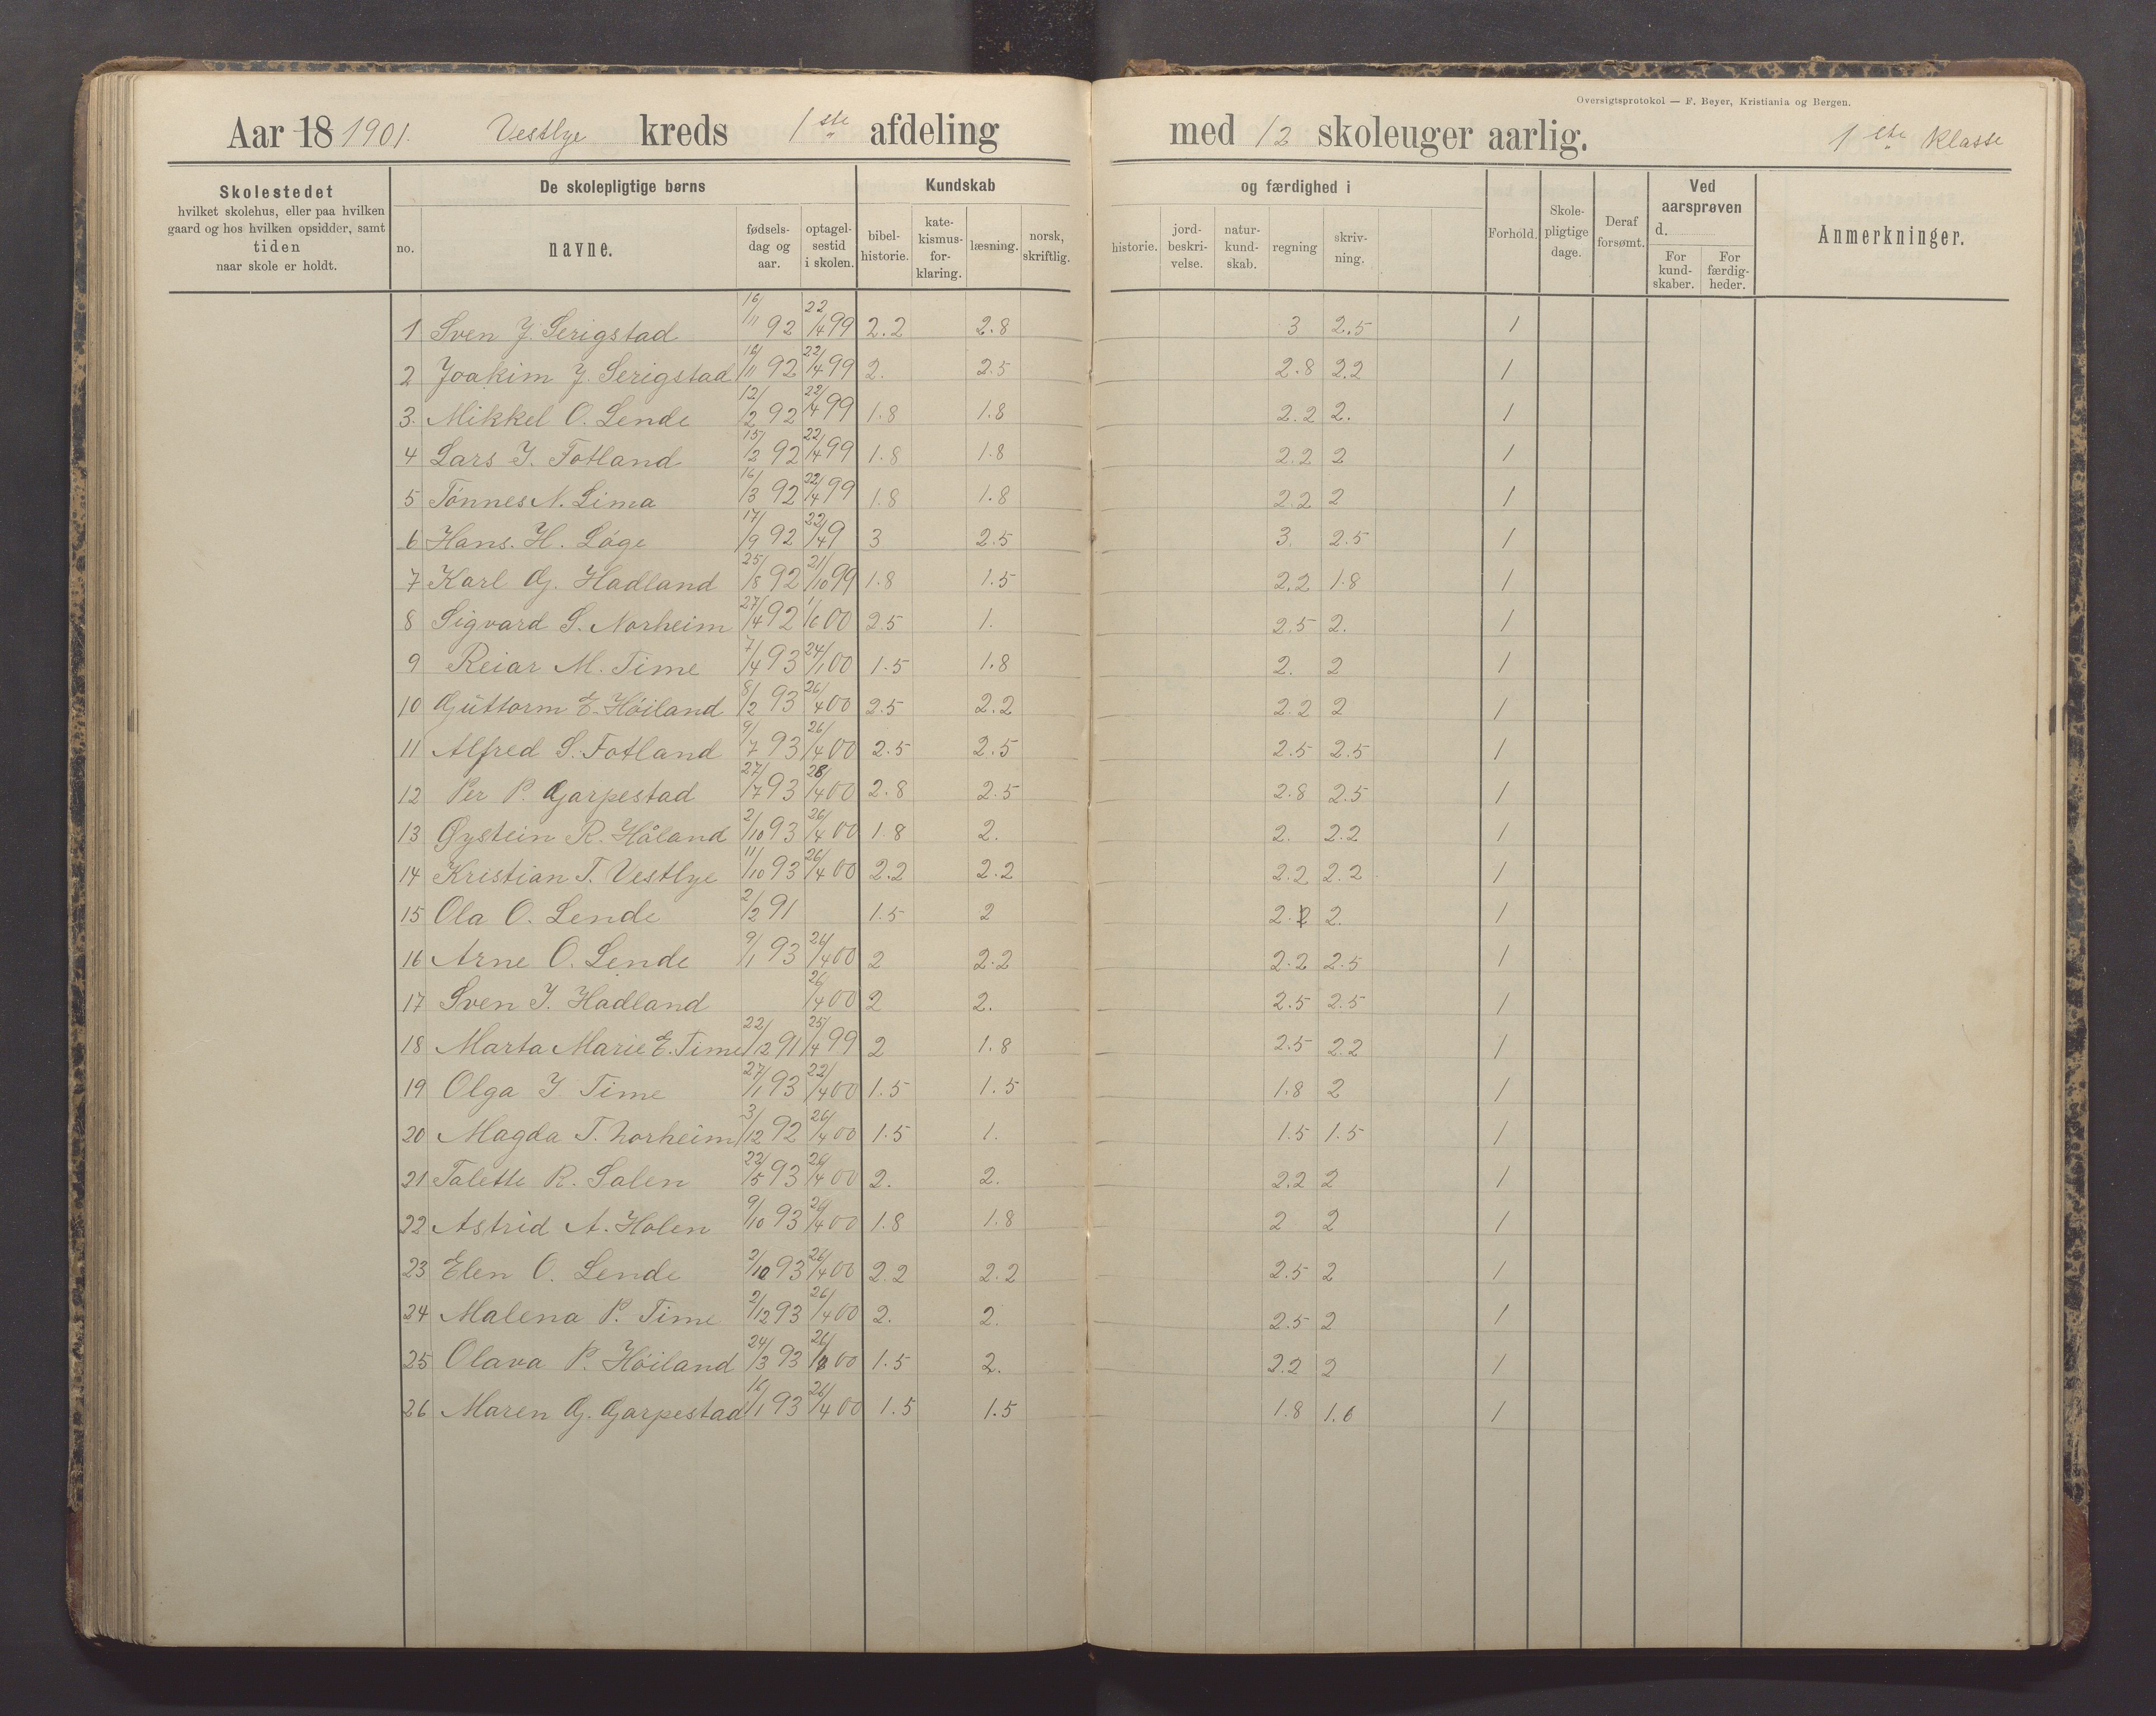 Oversigtsprotokol — F. Beyer, Kristiania og Bergen.
Aar 18 1901. Vestlye kreds 1ste afdeling med 12 skoleuger aarlig. 1ste Klasse
Skolestedet
hvilket skolehus, eller paa hvilken
gaard og hos hvilken opsidder, samt
tiden
naar skole er holdt.
De skolepligtige børns
no.
navne.
fødsels-
dag og
aar.
optagel-
sestid
i skolen.
Kundskab
bibel-
historie.
kate-
kismus-
for-
klaring.
læsning.
norsk,
skriftlig.
og færdighed i
historie.
jord-
beskri-
velse.
natur-
kund-
skab.
regning
skriv-
ning.
Forhold.
Skole-
pligtige
dage.
Deraf
forsømt.
Ved
aarsprøven
d.
For
kund-
skaber.
For
færdig-
heder.
Anmerkninger.
1 Sven J. Serigstad 16/11 92 22/4 99 2.2 2.8 3 2.5 1
2 Joakim J. Serigstad 16/11 92 22/4 99 2. 2.5 2.8 2.2 1
3. Mikkel O. Lende 12/2 92 22/4 99 1.8 1.8 2.2 2. 1
4 Lars J. Fotland 15/2 92 22/4 99 1.8 1.8 2.2 2 1
5 Tønnes N. Lima 16/3 92 22/4 99 1.8 1.8 2.2 2 1
6 Hans. H. Løge 17/9 92 22/4 9 3 2.5 3. 2.5 1
7 Karl G. Hadland 25/8 92 21/10 99 1.8 1.5 2.2 1.8 1
8 Sigvard S. Norheim 27/4 92 1/6 00 2.5 1. 2.5 2. 1
9 Reiar M. Time 7/4 93 24/1 00 1.5 1.8 2. 2 1
10 Guttorm E. Høiland 8/2 93 26/4 00 2.5 2.2 2.2 2 1
11 Alfred S. Fotland 9/7 93 26/4 00 2.5 2.5 2.5 2.5 1
12 Per P. Garpestad 27/7 93 28/4 00 2.8 2.5 2.8 2.5 1
13 Øystein R. Håland 2/10 93 26/4 00 1.8 2. 2. 2.2 1
14 Kristian T. Vestlye 11/10 93 26/4 00 2.2 2.2 2.2 2.2 1
15 Ola O. Lende 2/2 91 1.5 2 2.2 2. 1
16 Arne O. Lende 9/1 93 26/4 00 2 2.2 2.2 2.5 1
17 Sven J. Hadland 26/4 00 2 2. 2.5 2.5 1
18 Marta Marie E. Time 22/12 91 25/4 99 2 1.8 2.5 2.2 1
19 Olga J Time 27/1 93 22/4 00 1.5 1.5 1.8 2 1
20 Magda T. Norheim 3/12 92 26/4 00 1.5 1. 1.5 1.5 1
21 Talette R. Salen 22/5 93 26/4 00 2. 2. 2.2 2 1
22 Astrid A. Holen 9/10 93 26/4 00 1.8 1.8 2 2 1
23 Elen O. Lende 2/10 93 26/4 00 2.2 2.2 2.5 2 1
24 Malena P. Time 2/12 93 26/4 00 2. 2. 2.5 2 1
25 Olava P. Høiland 24/3 93 26/ 00 1.5 2. 2.2 2 1
26 Maren G. Garpestad 16/1 93 26/4 00 1.5 1.5 1.8 1.6 1